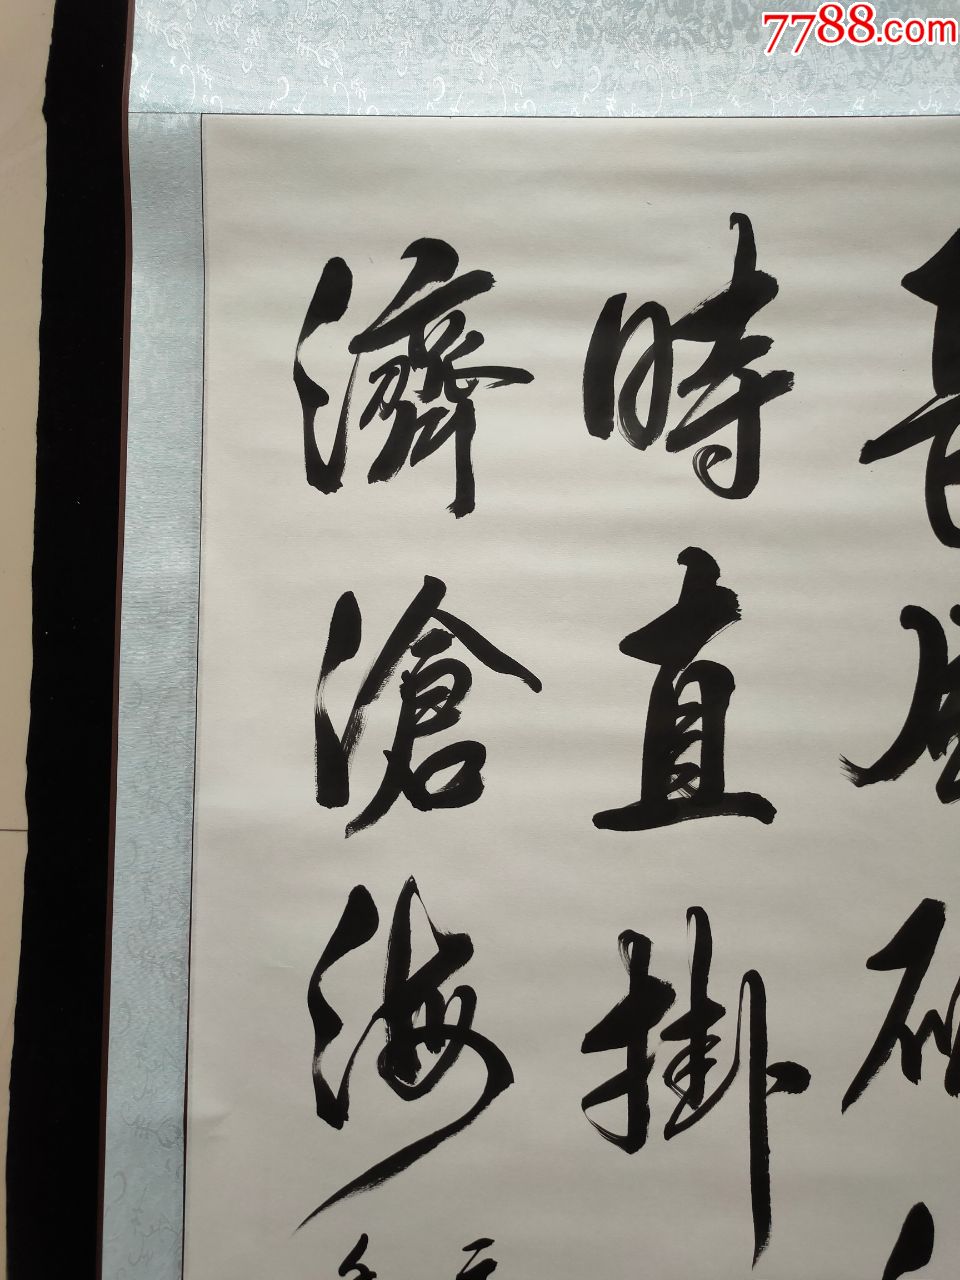 7788.com
長風破
時直掛
濟滄海